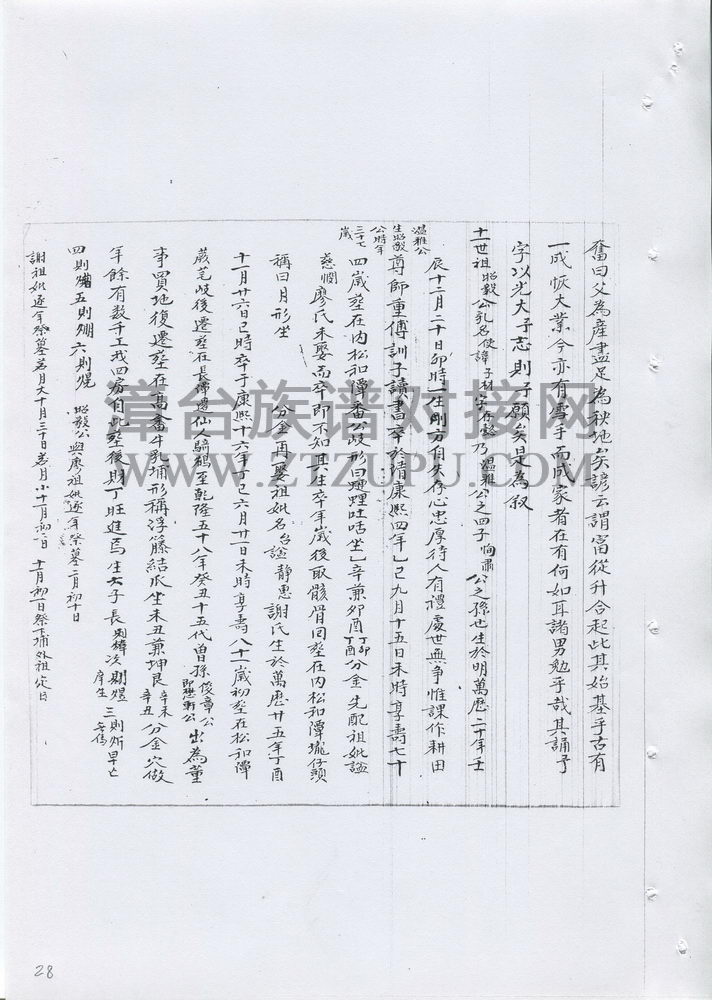 奮曰父為產盡足為秧地矣諺云謂富從升合起此其始基乎古有
一成恢大業今亦有隻手而成家者在有何如耳諸男勉乎哉其誦予
字以光大予志則予願矣是為叙
十一世祖昭毅公乳名使諱子材字存懿乃溫雅公之四子恂肅公之孫也生於明萬曆二十年壬
辰十二月二十日卯時一生剛方自矢存心忠厚待人有禮處世無爭惟課作耕田
溫雅公生昭毅公時年三十七歲
尊師重傅訓子讀書卒於清康熙四年乙巳九月十五日未時享壽七十
四歲塋在內松和潭番公岐形曰坐乙辛兼卯酉丁卯丁酉分金先配祖妣謚
慈憫廖氏未娶而卒即不知其生卒年歲後取骸骨回塋在內松和潭壠仔頭
稱曰月形坐 分金再娶祖妣名台謚靜惠謝氏生於萬曆廿五年丁酉
十一月廿六日巳時卒于康熙十六年丁巳六月廿一日未時享壽八十一歲初塋在松和潭
崴芝岐後遷塋在長潭邊仙人騎鶴至乾隆五十八年癸丑十五代曾孫俊章公即懋軒公出為董
事買地復遷塋在高番牛乳埔形稱浮籐結瓜坐未丑兼坤艮辛未辛丑分金穴做
年餘有数千工我四房自此塋後財丁旺進焉生六子長則樟次則煜庠生三則炘早亡無傳
四則 五則 六則熀 昭毅公與廖祖妣逐年祭墓二月初十日
謝祖妣逐年祭墓若月大十月三十日若月小十一月初一日 十一月初一日祭下埔外祖定日
28
漳台族谱对接网
WWW.ZTZUPU.COM